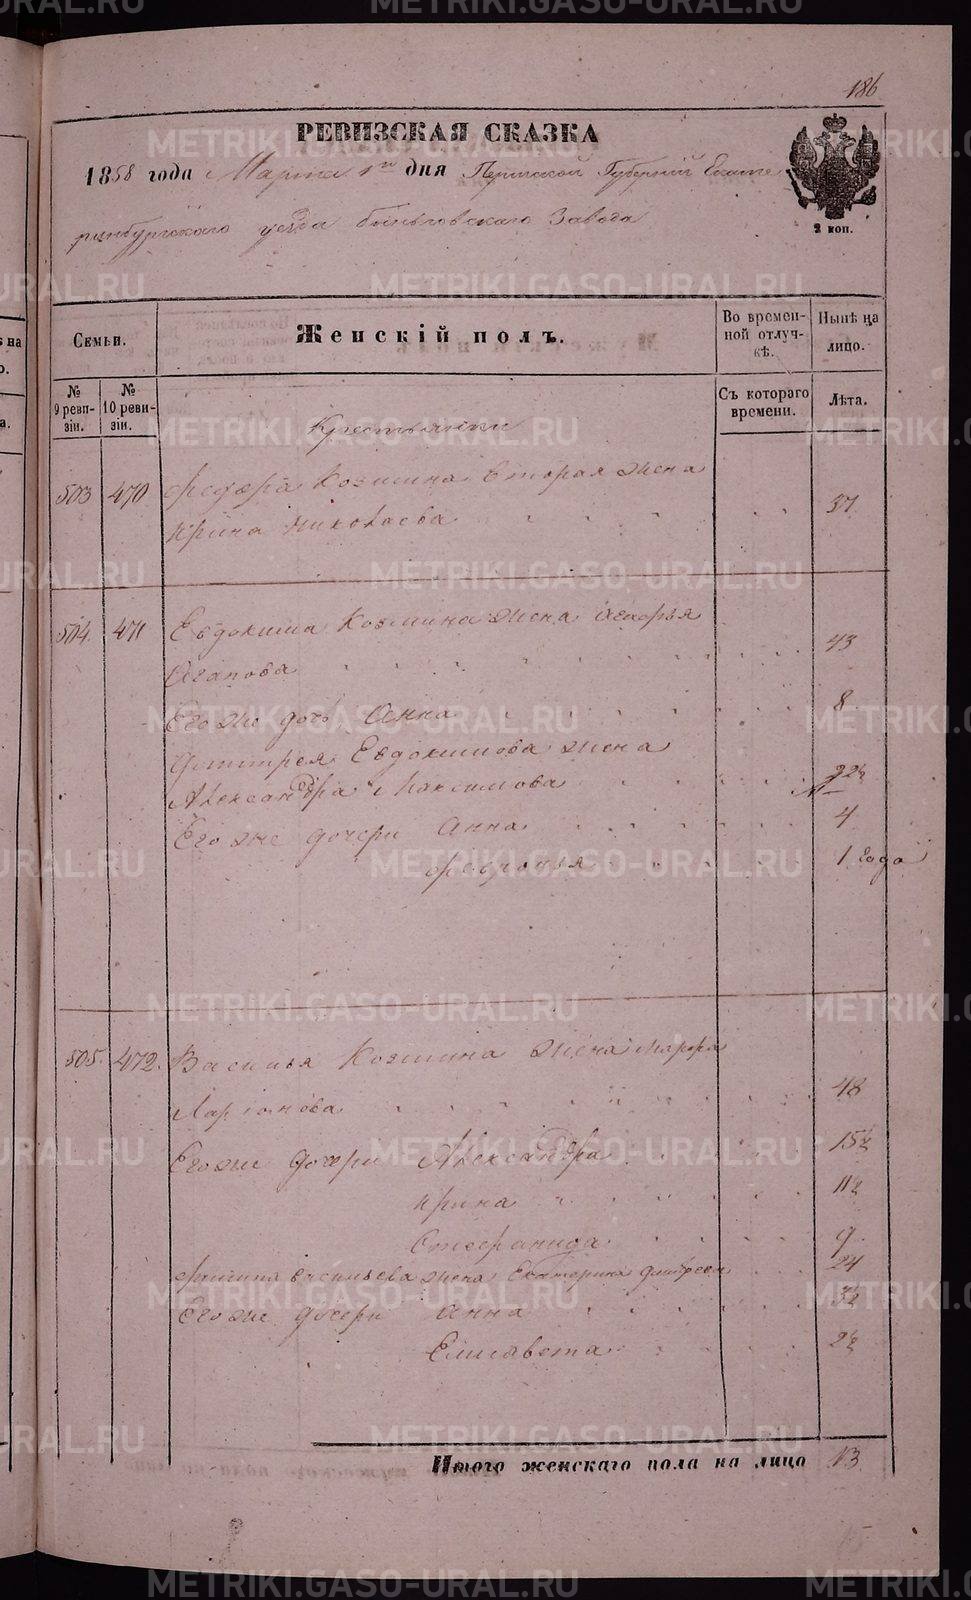 186
РЕВИЗСКАЯ СКАЗКА
1858 года Марта 1го дня Пермской Губерніи Екате
ринбургскаго уезда Быньговскаго Завода
2 коп.
Семьи.
Женскій полъ.
Во времен-
ной отлуч-
кѣ.
Нынѣ на
лицо.
№
9 реви-
зіи.
№
10 реви-
зіи.
Съ котораго
времени.
Лѣта.
Крестьянки
503 470 Федора Козмина вторая жена
Ирина Николаева 37
504. 471 Евдокима Козмина жена Агафья
Агапова 43
Его же дочь Анна 8
Дмитрея Евдокимова жена
Александра Максимова 22½
Его же дочери Анна 4
Февронья 1 года
505. 472. Василья Козмина жена Марфа
Ларіонова 48
Его же дочери Александра 15½
Ирина 11½
Стефанида 9
Филипа Васильева жена Екатерина 24
Его же дочери Анна 3½
Елисавета 2½
Итого женскаго пола на лицо 13
METRIKI.GASO-URAL.RU